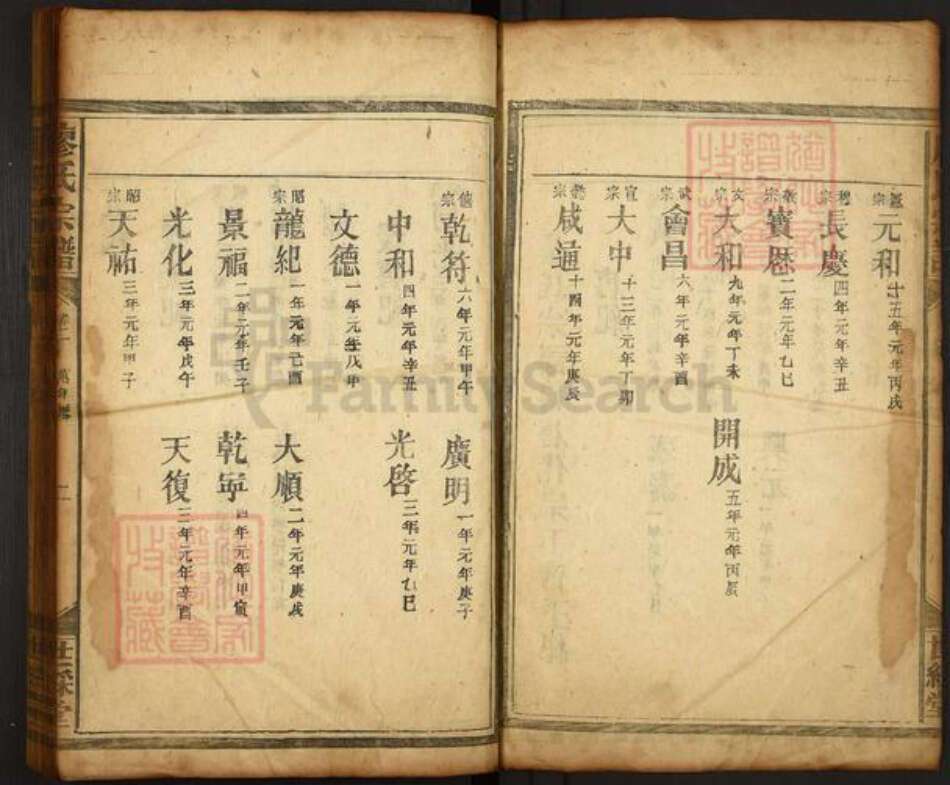 憲宗 元和 十五年元年丙戌
穆宗 長慶 四年元年辛丑
敬宗 寶歷 二年元年乙巳
文宗 大和 九年元年丁未 開成 五年元年丙辰
武宗 會昌 六年元年辛酉
宣宗 大中 十三年元年丁卯
懿宗 咸通 十四年元年庚辰
僖宗 乾符 六年元年甲午 廣明 一年元年庚子
中和 四年元年辛丑 光啓 三年元年乙巳
文德 一年元年戊申
昭宗 龍紀 一年元年己酉 大順 二年元年庚戌
景福 二年元年壬子 乾寧 四年元年甲寅
光化 三年元年戊午 天復 三年元年辛酉
昭宗 天祐 三年元年甲子
廖氏宗譜
卷一
二
世綵堂
FamilySearch